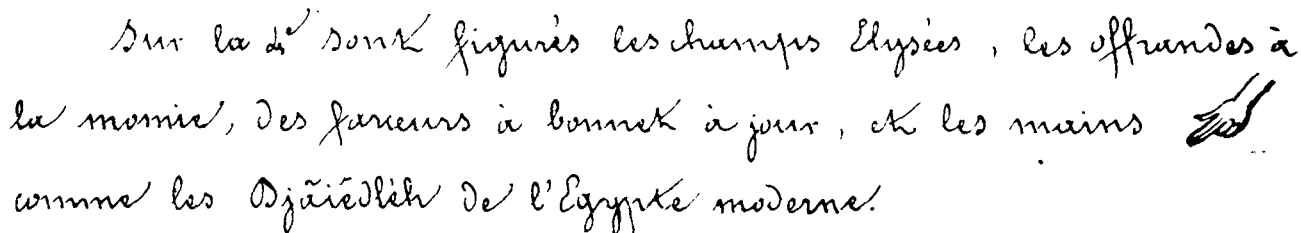 Sur la 4e sont figurés les champs Elysées, les offrandes à
la momie, des farceurs à bonnet à jour, et les mains
comme les Djãiẽdlèh de l'Egypte moderne.